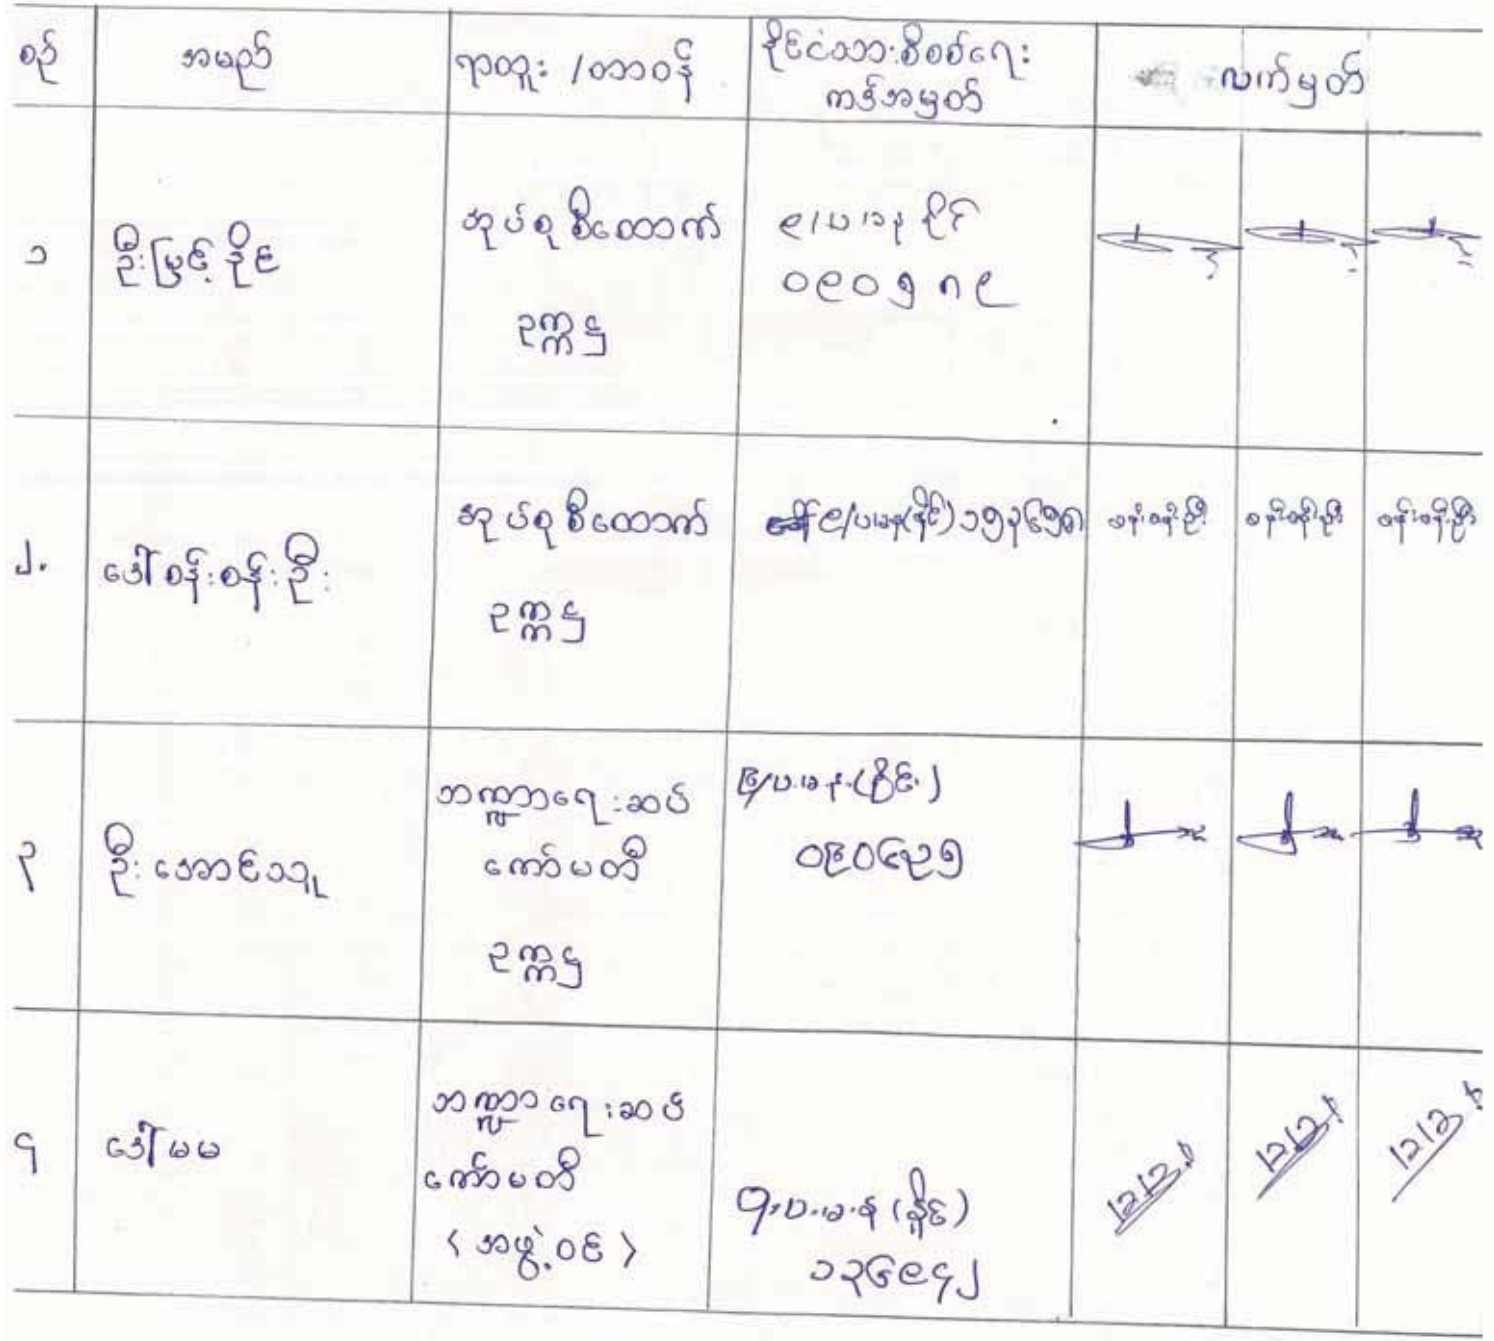 စဉ်
အမည်
ရာထူး /တာဝန်
နိုင်ငံသားစိစစ်ရေး
ကဒ်အမှတ်
လက်မှတ်
၁
ဦးမြင့်ဒိုင်
အုပ်စုစီထောက်
ဥက္ကဋ္ဌ
၉/ပမန နိုင်
၀၉၀၅၈၉
၂.
ဒေါ်စန်းစန်းဦး
အုပ်စုစီထောက်
ဥက္ကဋ္ဌ
၉/ပမန(နိုင်)၁၅၃၆၅၈
စန်းစန်းဦး
စန်းစန်းဦး
စန်းစန်းဦး
၃
ဦးအောင်သူ
ဘဏ္ဍာရေးဆပ်
ကော်မတီ
ဥက္ကဋ္ဌ
၉/ပ.မ.န.(နိုင်)
၄
ဒေါ်မမ
ဘဏ္ဍာရေးဆပ်
ကော်မတီ
<အဖွဲ့ဝင်>
ပ.မ.န(နိုင်)
၁၃၆၉၄၂